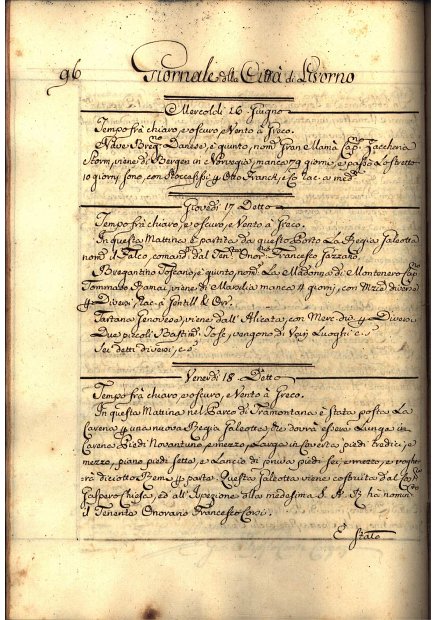 96 Giornale della Città di Livorno
Mercoldi 16 Giugno
Tempo frà chiaro, e oscuro, e Vento à Greco.
Nave Danese, è giunto, nom: Cap:
viene di Bergen in Norvegia, manca 79 giorni, e passò Lo stretto
10 giorni sono, con Stoccafissi p Otto Franck,
Giovedi 17 Detto
Tempo frà chiaro, e oscuro, e Vento à Greco.
In questa Mattina è partita da questo Porto La Regia Galeotta
nom: il Falco, comand: dal Ten: Onor: Francesco
Brigantino Toscano, è giunto, nom: La Madonna di Montenero Cap:
Tommaso viene di Marsilia manca 4 giorni, con Merc diverse
p Diversi,
Tartana Genovese, viene dall' Alicata, con Merc div: p Diversi
Due piccoli Bastim: Tosc, vengono di Varj Luoghi
Sei detti diversi,
Venerdi 18 Detto
Tempo frà chiaro, e oscuro, e Vento à Greco.
In questa Mattina nel Parco di Tramontana è stata posta La
Carena p una nuova Regia Galeotta, che dovrà essere Lunga in
Carena Piedi Novantuno, e mezzo, Larga in Coverta piedi tredici, e
mezzo, piano piedi sette, e Lancio di prua piedi sei, e mezzo, e vogherà
diciotto Remi p parte. Questa Galeotta viene costruita dal
Gaspero Chiesa, ed all' Ispezione della medesima S. A. R. ha nomin:
il Tenente Onorario Francesco
È stato